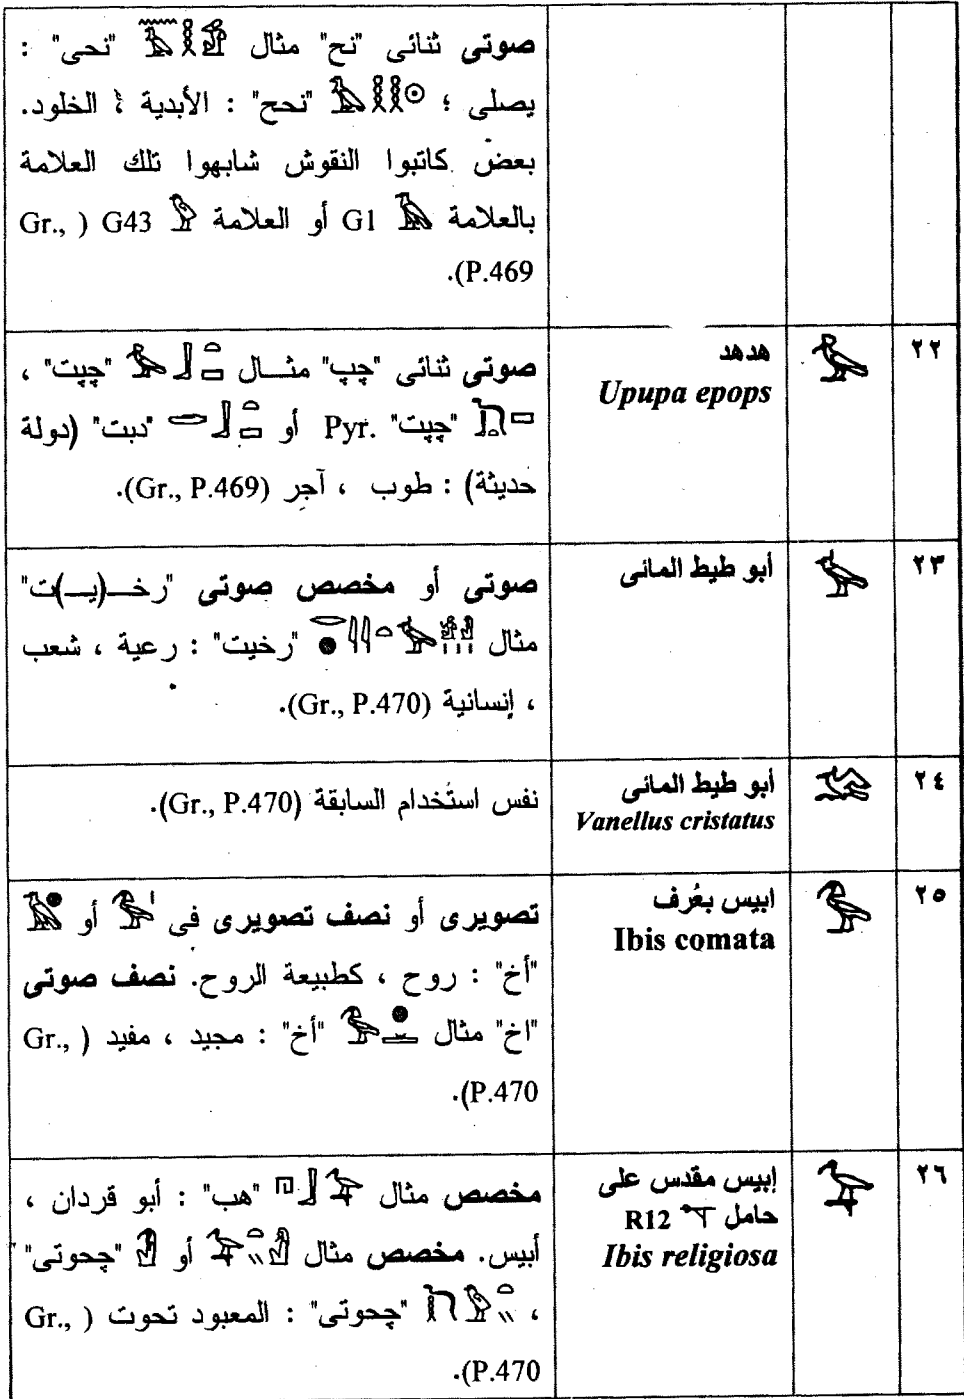 صوتى ثنائى "نح" مثال "نحى" :
يصلى ؛ "نحح" : الأبدية ؛ الخلود.
بعض كاتبوا النقوش شابهوا تلك العلامة
بالعلامة G1 أو العلامة G43 (Gr.,
P.469).
٢٢
هدهد
Upupa epops
صوتى ثنائى "چپ" مثـــال "چپت" ،
"چپت" Pyr. أو "دبت" (دولة
حديثة) : طوب ، آجر (Gr., P.469).
٢٣
أبو طيط المائى
صوتى أو مخصص صوتى "رخــ(يــ)ت"
مثال "رخيت" : رعية ، شعب
، إنسانية (Gr., P.470).
٢٤
أبو طيط المائى
Vanellus cristatus
نفس استُخدام السابقة (Gr., P.470).
٢٥
ابيس بعُرف
Ibis comata
تصويرى أو نصف تصويرى فى أو
"أخ" : روح ، كطبيعة الروح. نصف صوتى
"اخ" مثال "أخ" : مجيد ، مفيد (Gr.,
P.470).
٢٦
إبيس مقدس على
حامل R12
Ibis religiosa
مخصص مثال "هب" : أبو قردان ،
أبيس. مخصص مثال أو "چحوتى"
، "چحوتى" : المعبود تحوت (Gr.,
P.470).